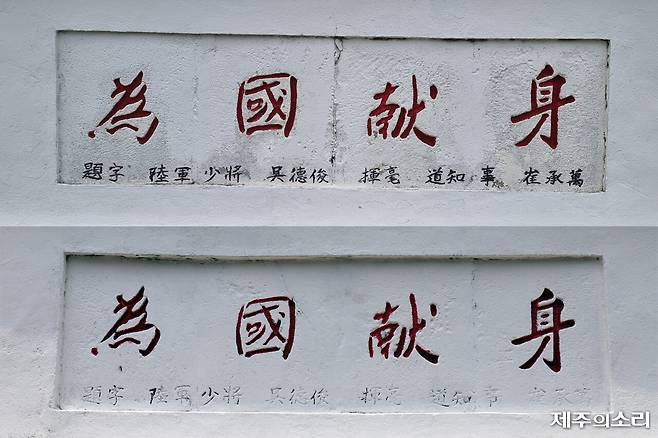 為國献身
題字 陸軍少將 吳德俊 揮毫 道知事 崔承萬
為國献身
題字 陸軍少將 吳德俊 揮毫 道知事 崔承萬
제주의소리